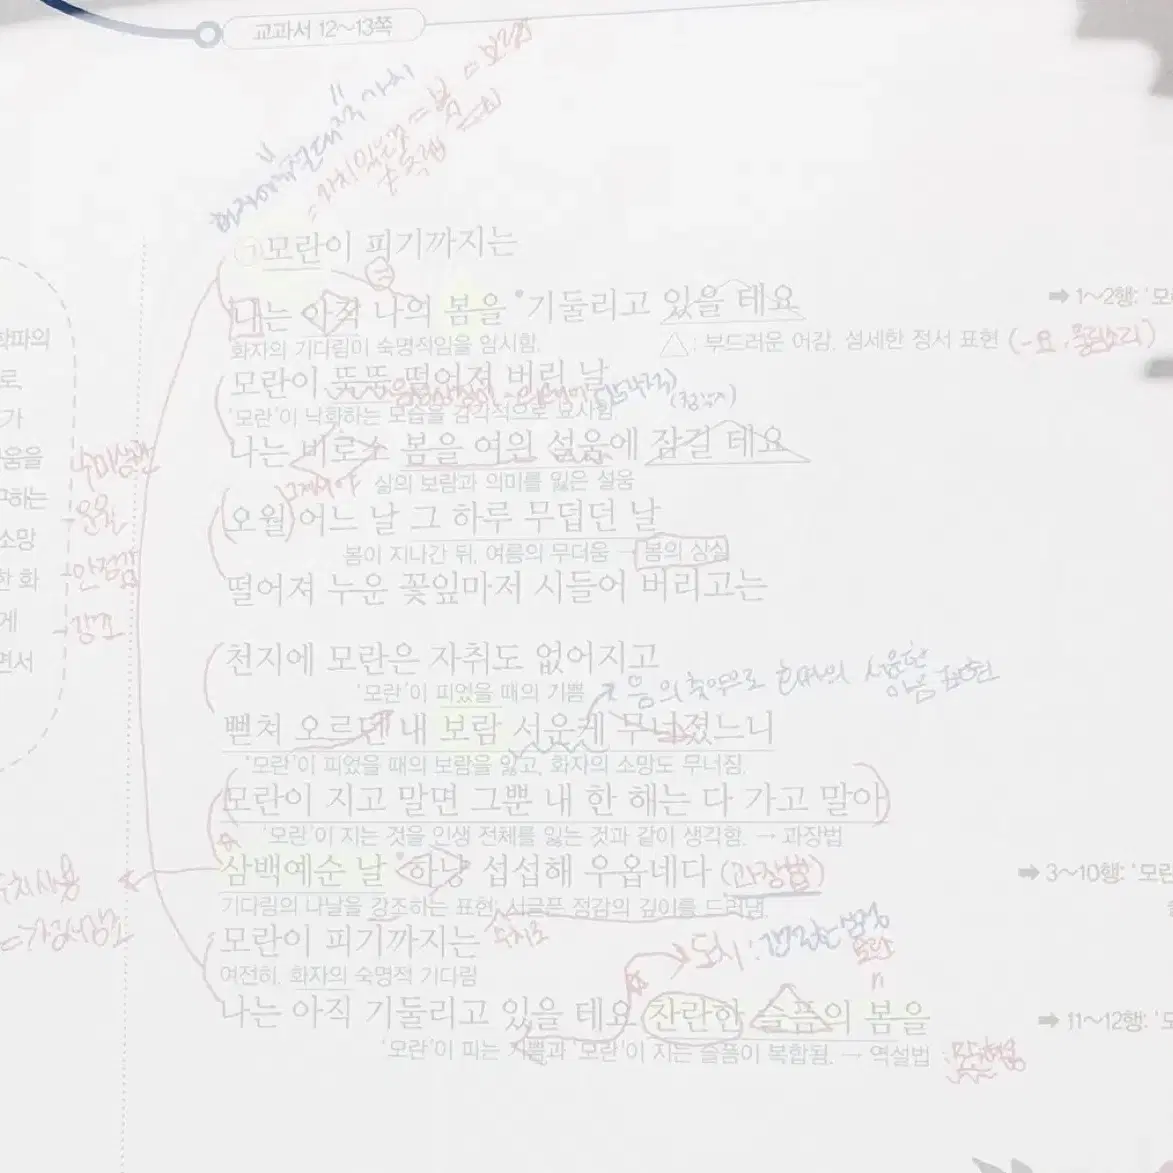 교과서 12~13쪽
모란이 피기까지는
나는 아직 나의 봄을 기둘리고 있을 테요
➡ 1~2행: '모
화자의 기다림이 숙명적임을 암시함.
△: 부드러운 어감, 섬세한 정서 표현 (-요, 울림소리)
모란이 뚝뚝 떨어져 버린 날
'모란'이 낙화하는 모습을 감각적으로 묘사함
나는 비로소 봄을 여읜 설움에 잠길 테요
그제서야 삶의 보람과 의미를 잃은 설움
오월 어느 날 그 하루 무덥던 날
봄이 지나간 뒤, 여름의 무더움 → 봄의 상실
떨어져 누운 꽃잎마저 시들어 버리고는
천지에 모란은 자취도 없어지고
'모란'이 피었을 때의 기쁨
뻗쳐 오르던 내 보람 서운케 무너졌느니
'모란'이 피었을 때의 보람을 잃고, 화자의 소망도 무너짐.
모란이 지고 말면 그뿐 내 한 해는 다 가고 말아
'모란'이 지는 것을 인생 전체를 잃는 것과 같이 생각함. → 과장법
삼백예순 날 하냥 섭섭해 우옵네다 (과장법)
➡ 3~10행: '모란
기다림의 나날을 강조하는 표현: 서글픈 정감의 깊이를 드러냄.
모란이 피기까지는
여전히, 화자의 숙명적 기다림
나는 아직 기둘리고 있을 테요 찬란한 슬픔의 봄을
➡ 11~12행: '모
'모란'이 피는 기쁨과 '모란'이 지는 슬픔이 복합됨. → 역설법
학파의
로
가
움을
구하는
소망
한 화
게
면서
수미상관
운율
안정감
강조